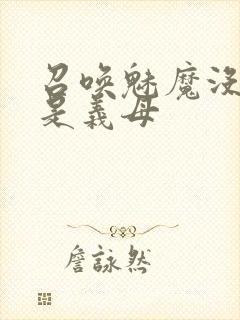 召唤魅魔没
是義母
詹詠然